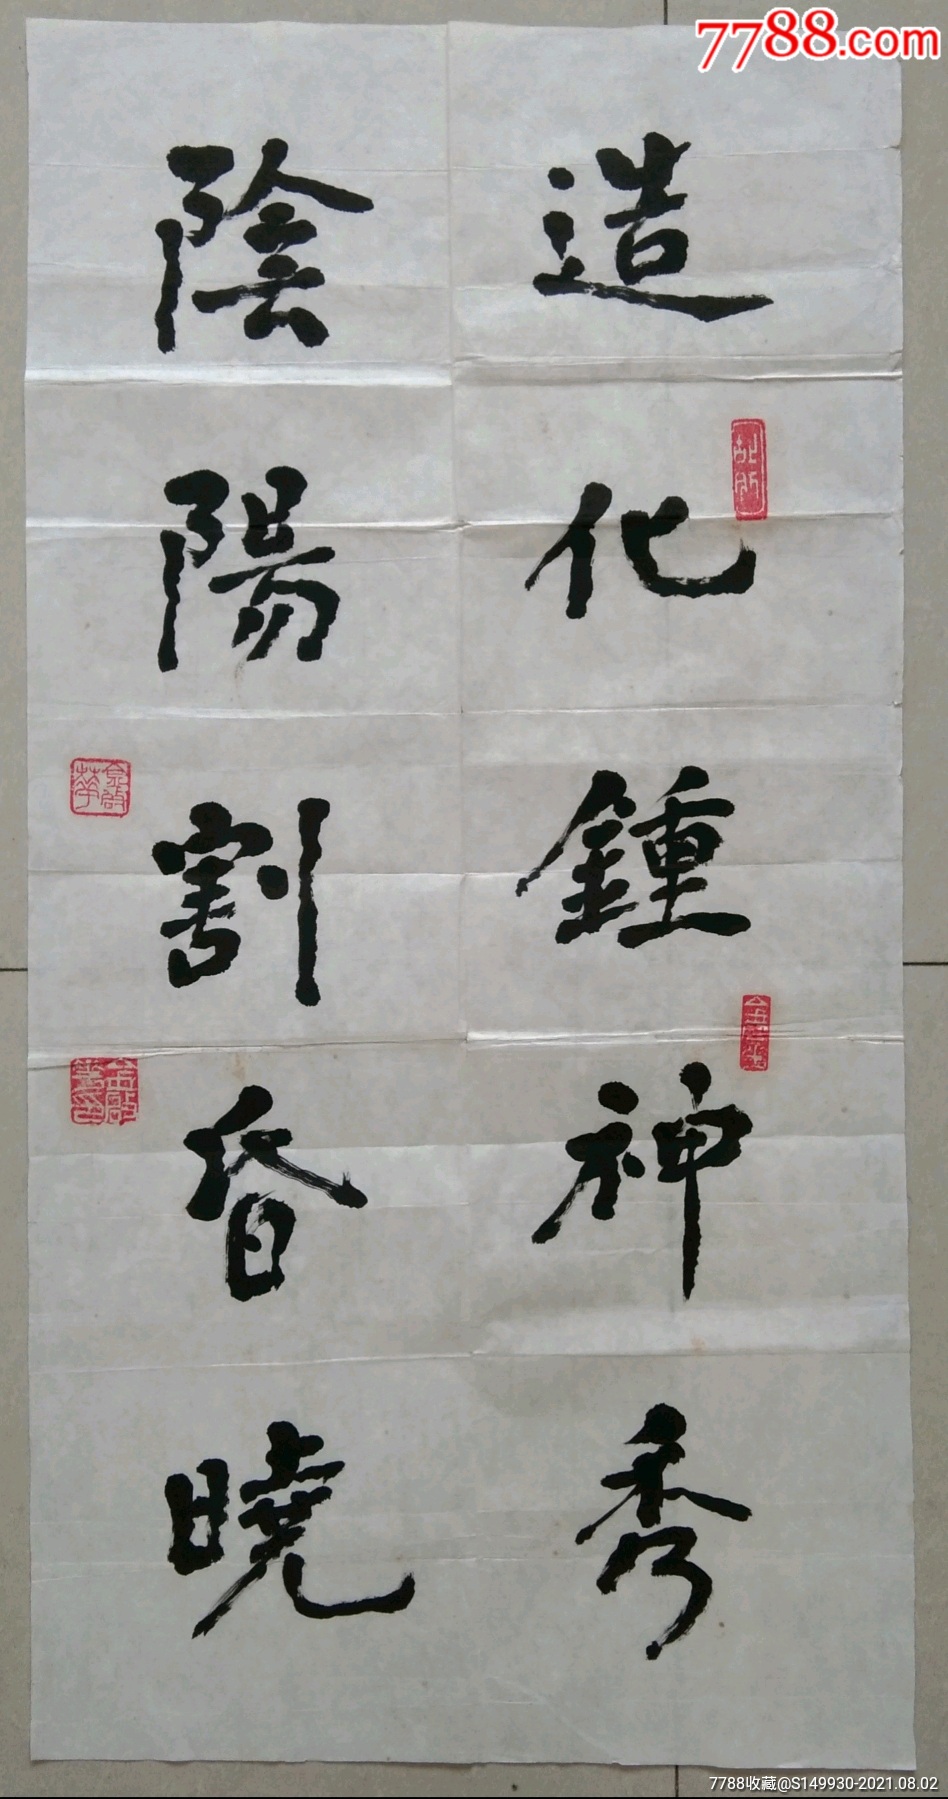 7788.com
造化鍾神秀
陰陽割昏曉
7788收藏@S149930-2021.08.02